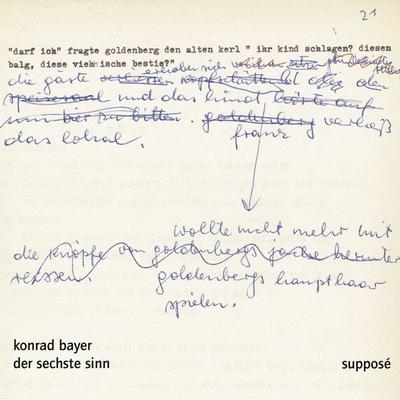 21
"darf ich" fragte goldenberg den alten kerl " ihr kind schlagen? diesen
balg, diese viehische bestie?"
die gäste verliessen kopfschüttelnd den
speisesaal und das kind hörte auf
um bier zu bitten. goldenberg verließ
das lokal. franz
wollte nicht mehr mit
die knöpfe von goldenbergs jacke herunter
reissen. goldenbergs haupthaar
spielen.
konrad bayer
der sechste sinn
supposé